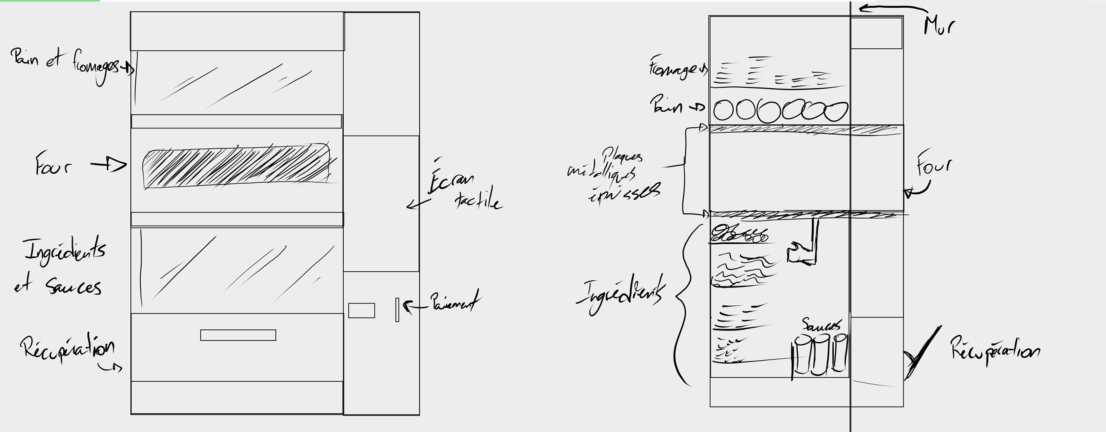 Pain et fromages
Four
Ingrédients
et Sauces
Récupération
Écran
tactile
Paiement
Mur
Fromage
Pain
Plaques
métalliques
épaisses
Four
Ingrédients
Sauces
Récupération